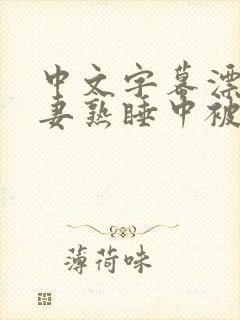 中文字幕漂
妻熟睡中被
薄荷味